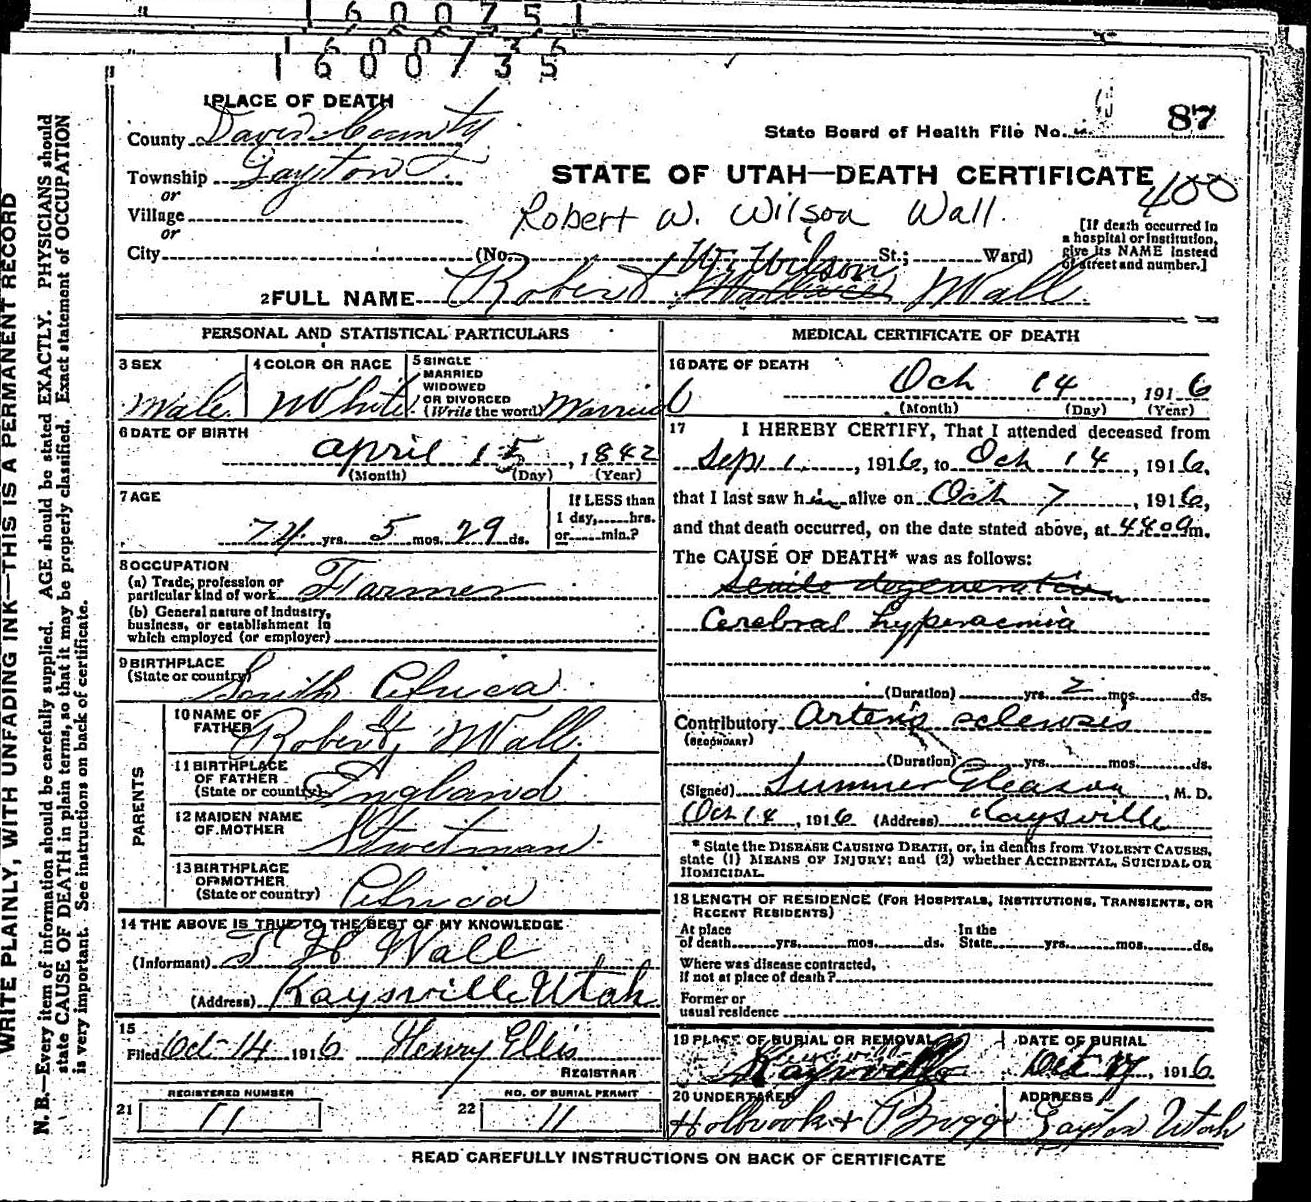 1600751
1600735
1 PLACE OF DEATH
County Davis County
Township Layton
or
Village
or
City (No. St.; Ward)
State Board of Health File No. 87
STATE OF UTAH—DEATH CERTIFICATE
400
Robert W. Wilson Wall
[If death occurred in a hospital or institution, give its NAME instead of street and number.]
W. Wilson
2 FULL NAME Robert Wall
PERSONAL AND STATISTICAL PARTICULARS
3 SEX Male
4 COLOR OR RACE White
5 SINGLE MARRIED WIDOWED OR DIVORCED (Write the word) Married
6 DATE OF BIRTH
April 15, 1842
(Month) (Day) (Year)
7 AGE
74 yrs. 5 mos. 29 ds.
If LESS than 1 day, hrs. or min.?
8 OCCUPATION
(a) Trade, profession or particular kind of work Farmer
(b) General nature of industry, business, or establishment in which employed (or employer)
9 BIRTHPLACE
(State or country) South Africa
PARENTS
10 NAME OF FATHER Robert Wall
11 BIRTHPLACE OF FATHER (State or country) England
12 MAIDEN NAME OF MOTHER
13 BIRTHPLACE OF MOTHER (State or country) Africa
14 THE ABOVE IS TRUE TO THE BEST OF MY KNOWLEDGE
(Informant) Wall
(Address) Kaysville Utah
15
Filed Oct 14 1916 Henry Ellis
REGISTRAR
REGISTERED NUMBER
21 11
NO. OF BURIAL PERMIT
22 11
MEDICAL CERTIFICATE OF DEATH
16 DATE OF DEATH
Oct 14, 1916
(Month) (Day) (Year)
17 I HEREBY CERTIFY, That I attended deceased from
Sept 1, 1916, to Oct 14, 1916,
that I last saw him alive on Oct 7, 1916,
and that death occurred, on the date stated above, at m.
The CAUSE OF DEATH* was as follows:
Senile degeneration
Cerebral hyperaemia
(Duration) yrs. 2 mos. ds.
Contributory Arterio sclerosis
(SECONDARY)
(Duration) yrs. mos. ds.
(Signed) Sumner Gleason, M. D.
Oct 14, 1916 (Address) Kaysville
* State the DISEASE CAUSING DEATH, or, in deaths from VIOLENT CAUSES, state (1) MEANS OF INJURY; and (2) whether ACCIDENTAL, SUICIDAL OR HOMICIDAL.
18 LENGTH OF RESIDENCE (FOR HOSPITALS, INSTITUTIONS, TRANSIENTS, OR RECENT RESIDENTS)
At place of death yrs. mos. ds. In the State yrs. mos. ds.
Where was disease contracted, if not at place of death?
Former or usual residence
19 PLACE OF BURIAL OR REMOVAL
Kaysville
DATE OF BURIAL
Oct 17, 1916
20 UNDERTAKER
Holbrook & Briggs
ADDRESS
Layton Utah
READ CAREFULLY INSTRUCTIONS ON BACK OF CERTIFICATE
WRITE PLAINLY, WITH UNFADING INK—THIS IS A PERMANENT RECORD
N. B.—Every item of information should be carefully supplied. AGE should be stated EXACTLY. PHYSICIANS should
state CAUSE OF DEATH in plain terms, so that it may be properly classified. Exact statement of OCCUPATION
is very important. See instructions on back of certificate.